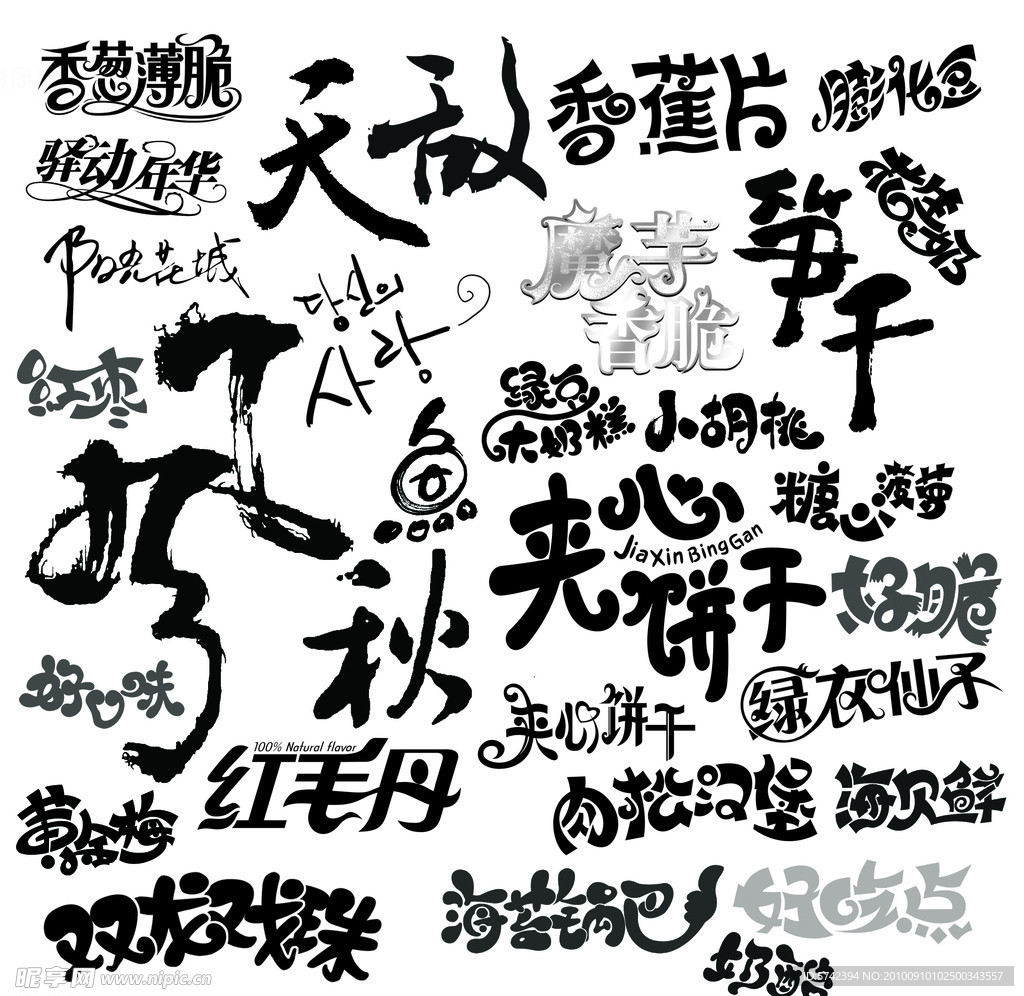 香葱薄脆
天敌
香蕉片
膨化豆
驿动年华
笋干
老生奶
阳光花城
魔芋
香脆
당신의
사랑
红枣
绿豆
大奶糕
小胡桃
鱼
糖心菠萝
夹心
JiaXin BingGan
饼干
好脆
秋
好心味
绿衣仙子
夹心饼干
100% Natural flavor
红毛丹
肉松汉堡
海贝鲜
黄金梅
双龙戏珠
海苔锅巴
好吃点
昵享网 www.nipic.cn
ID:5742394 NO:20100910102500343557